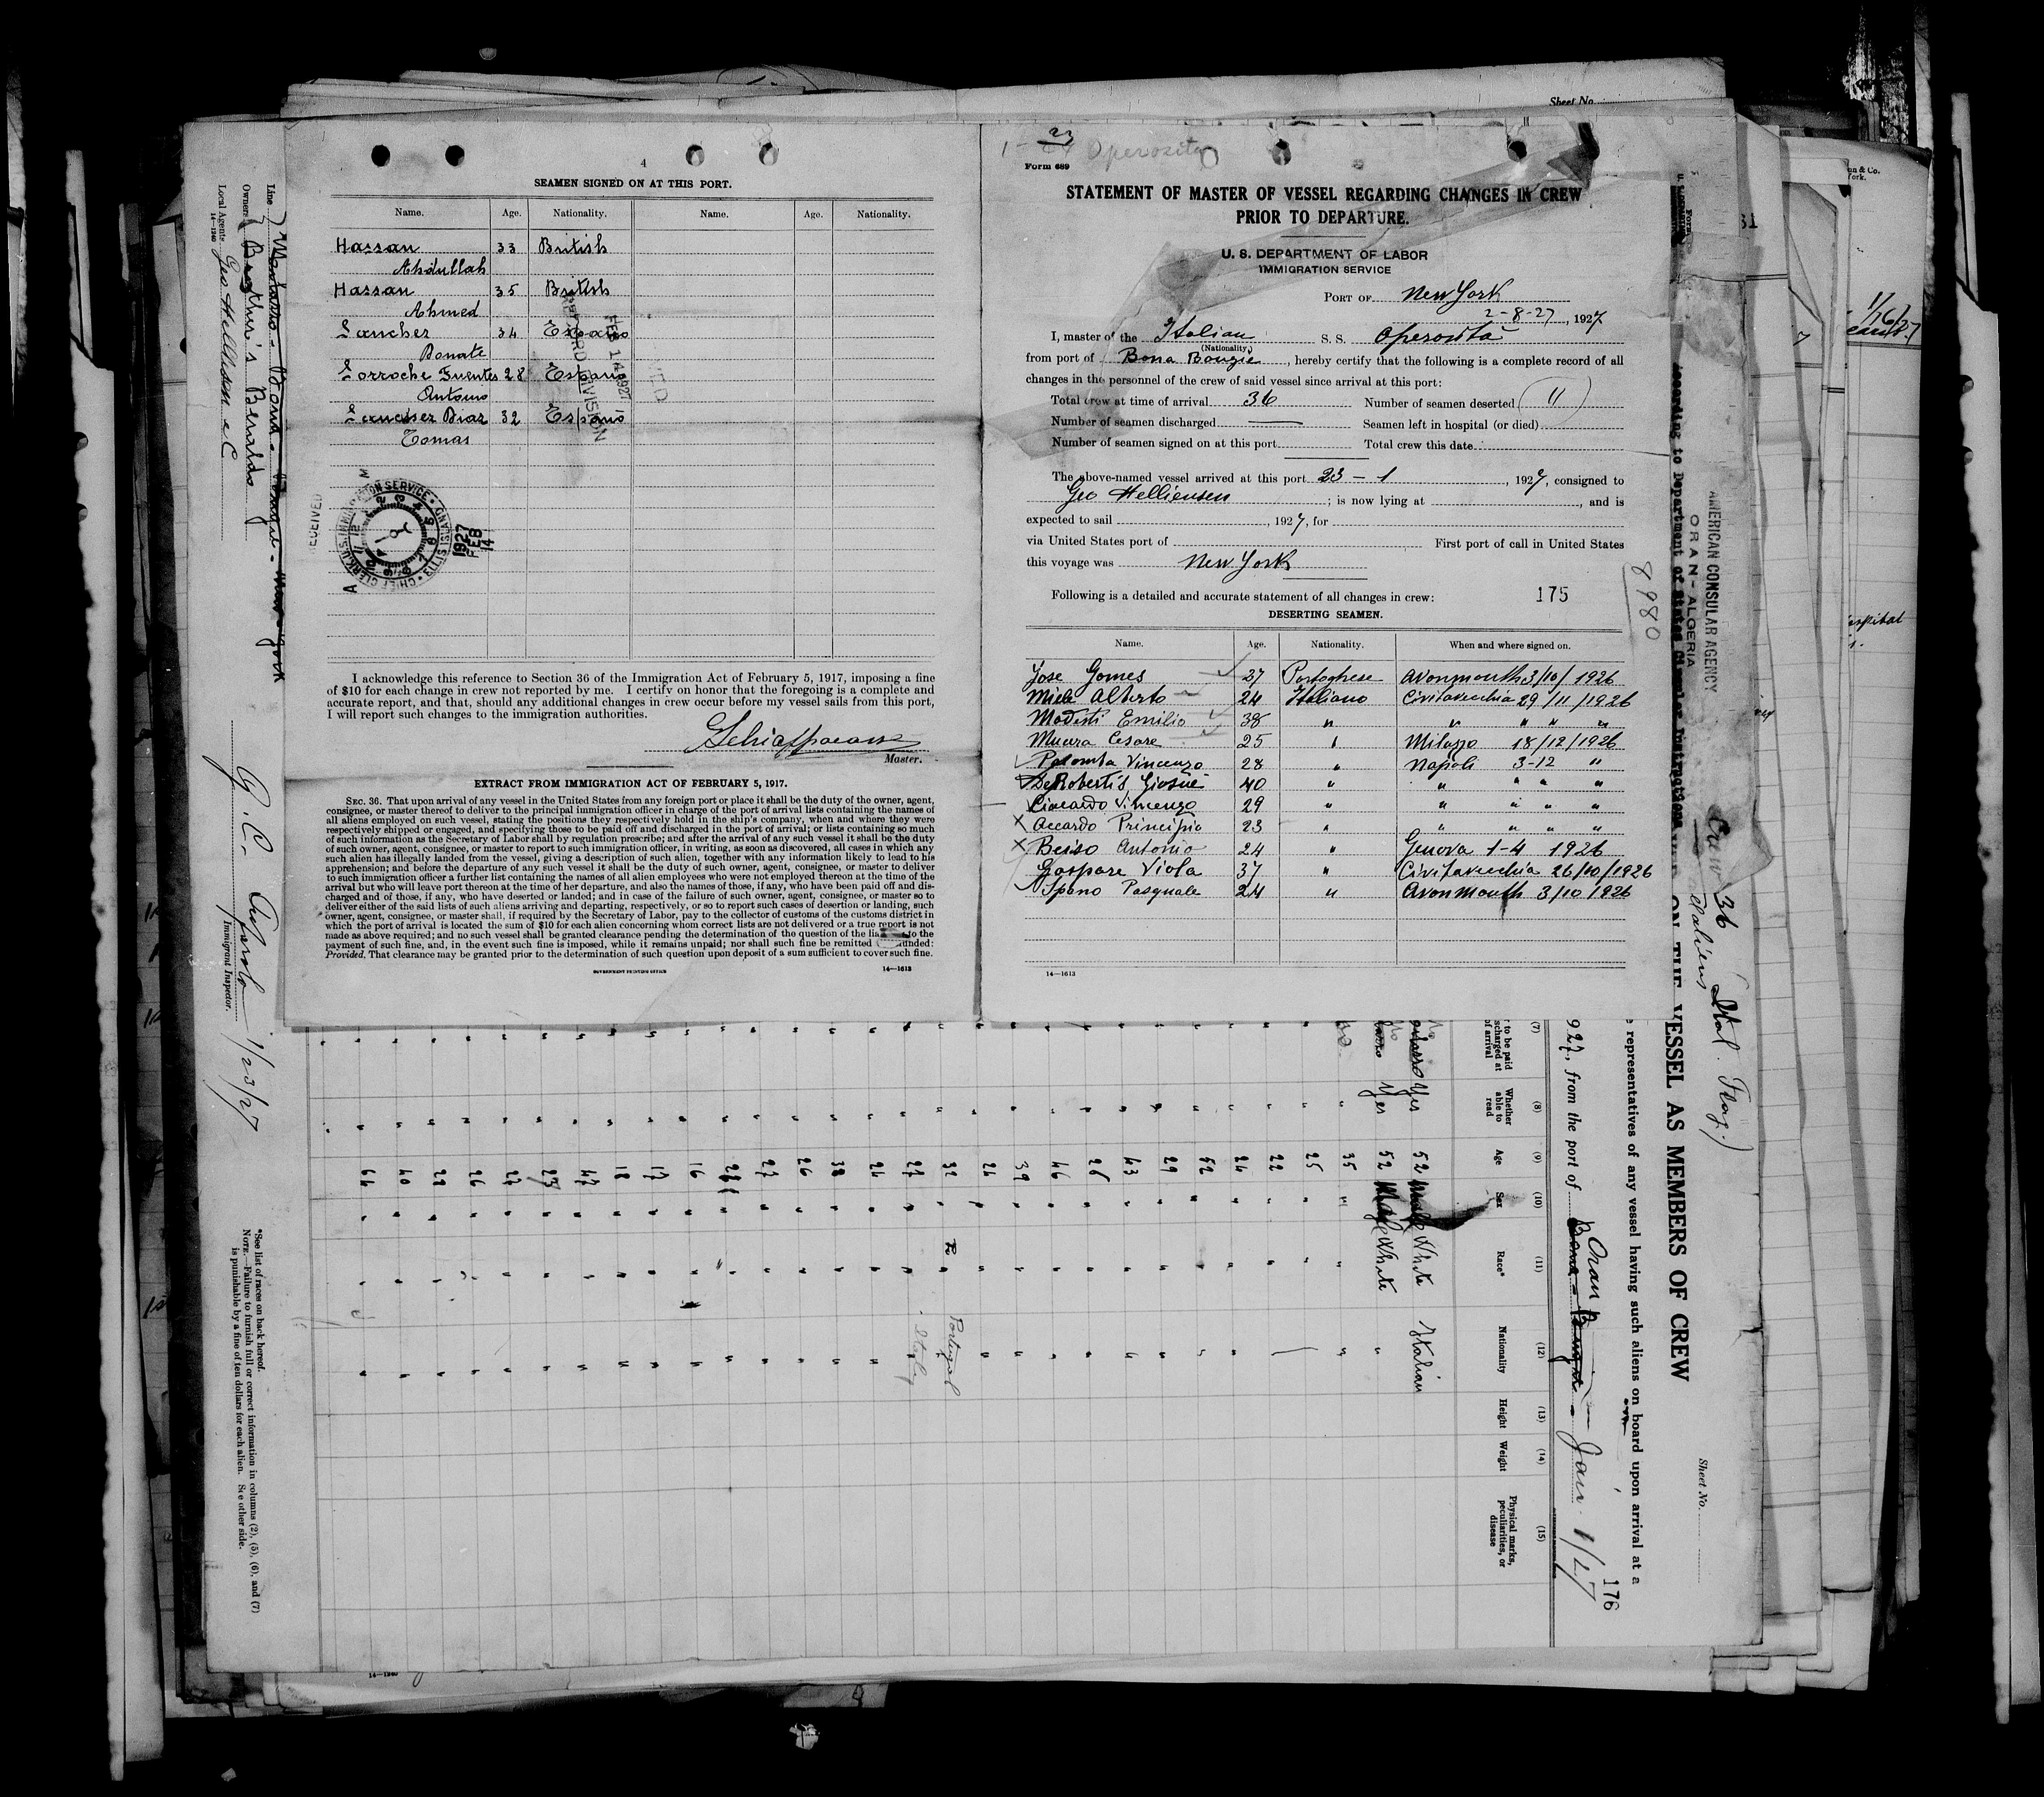 Sheet No.
4
SEAMEN SIGNED ON AT THIS PORT.
Name. Age. Nationality. Name. Age. Nationality.
Hassan 33 British
Abdullah
Hassan 35 British
Ahmed
34
Donate
Fuentes 28
Antonio
Diaz 32
Tomas
RECORD DIVISION
FEB 14 1927
RECEIVED
CHIEF CLERK U.S. IMMIGRATION SERVICE · ELLIS ISLAND
1927
FEB
14
I acknowledge this reference to Section 36 of the Immigration Act of February 5, 1917, imposing a fine
of $10 for each change in crew not reported by me. I certify on honor that the foregoing is a complete and
accurate report, and that, should any additional changes in crew occur before my vessel sails from this port,
I will report such changes to the immigration authorities.
Master.
EXTRACT FROM IMMIGRATION ACT OF FEBRUARY 5, 1917.
SEC. 36. That upon arrival of any vessel in the United States from any foreign port or place it shall be the duty of the owner, agent,
consignee, or master thereof to deliver to the principal immigration officer in charge of the port of arrival lists containing the names of
all aliens employed on such vessel, stating the positions they respectively hold in the ship's company, when and where they were
respectively shipped or engaged, and specifying those to be paid off and discharged in the port of arrival; or lists containing so much
of such information as the Secretary of Labor shall by regulation prescribe; and after the arrival of any such vessel it shall be the duty
of such owner, agent, consignee, or master to report to such immigration officer, in writing, as soon as discovered, all cases in which any
such alien has illegally landed from the vessel, giving a description of such alien, together with any information likely to lead to his
apprehension; and before the departure of any such vessel it shall be the duty of such owner, agent, consignee, or master to deliver
to such immigration officer a further list containing the names of all alien employees who were not employed thereon at the time of the
arrival but who will leave port thereon at the time of her departure, and also the names of those, if any, who have been paid off and dis-
charged and of those, if any, who have deserted or landed; and in case of the failure of such owner, agent, consignee, or master so to
deliver either of the said lists of such aliens arriving and departing, respectively, or so to report such cases of desertion or landing, such
owner, agent, consignee, or master shall, if required by the Secretary of Labor, pay to the collector of customs of the customs district in
which the port of arrival is located the sum of $10 for each alien concerning whom correct lists are not delivered or a true report is not
made as above required; and no such vessel shall be granted clearance pending the determination of the question of the to the
payment of such fine, and, in the event such fine is imposed, while it remains unpaid; nor shall such fine be remitted
Provided, That clearance may be granted prior to the determination of such question upon deposit of a sum sufficient to cover such fine.
GOVERNMENT PRINTING OFFICE 14—1613
23
Operosita
Form 689
STATEMENT OF MASTER OF VESSEL REGARDING CHANGES IN CREW
PRIOR TO DEPARTURE.
U. S. DEPARTMENT OF LABOR
IMMIGRATION SERVICE
PORT OF New York
2-8-27, 1927
I, master of the Italian S. S. Operosità
(Nationality)
from port of Bona Bougie, hereby certify that the following is a complete record of all
changes in the personnel of the crew of said vessel since arrival at this port:
Total crew at time of arrival 36 Number of seamen deserted (11)
Number of seamen discharged — Seamen left in hospital (or died)
Number of seamen signed on at this port Total crew this date
The above-named vessel arrived at this port 23 - 1, 1927, consigned to
Geo ; is now lying at , and is
expected to sail , 1927, for
via United States port of First port of call in United States
this voyage was New York
Following is a detailed and accurate statement of all changes in crew: 175
DESERTING SEAMEN.
Name. Age. Nationality. When and where signed on.
Jose Gomes 27 Portoghese Avonmouth 3/10/1926
Miele Alberto 24 Italiano Civitavecchia 29/11/1926
Modesti Emilio 38 " " " " "
Cesare 25 " Milazzo 18/12/1926
Palomba Vincenzo 28 " Napoli 3-12 "
De Robertis Giosuè 40 " " " " "
Vincenzo 29 " " " " "
X Accardo Principio 23 " " " " "
X Antonio 24 " Genova 1-4 1926
Gaspare Viola 37 " Civitavecchia 26/10/1926
Spano Pasquale 24 " Avonmouth 3/10 1926
14—1613
8980
AMERICAN CONSULAR AGENCY
ORAN - ALGERIA
Crew 36 (Ital. Flag.)
Italiens
Sheet No.
VESSEL AS MEMBERS OF CREW
representatives of any vessel having such aliens on board upon arrival at a
176
927, from the port of Oran Jan. 1/27
(7) (8) (9) (10) (11) (12) (13) (14) (15)
Whether able to read
Age
Sex
Race*
Nationality
Height
Weight
Physical marks, peculiarities, or disease
Yes 52 Male White Italian
Yes 52 Male White "
35
25
22
24
52
29
43
26
46
39
24
32 Portugal
27 Italy
24
38
26
27
16
17
18
42
23
27
26
29
40
64
Line
Owners Brother's Beraldo
Local Agents Geo
14—1240
1/23/27
Immigrant Inspector.
*See list of races on back hereof.
NOTE.—Failure to furnish full or correct information in columns (2), (5), (6), and (7)
is punishable by a fine of ten dollars for each alien. See other side.